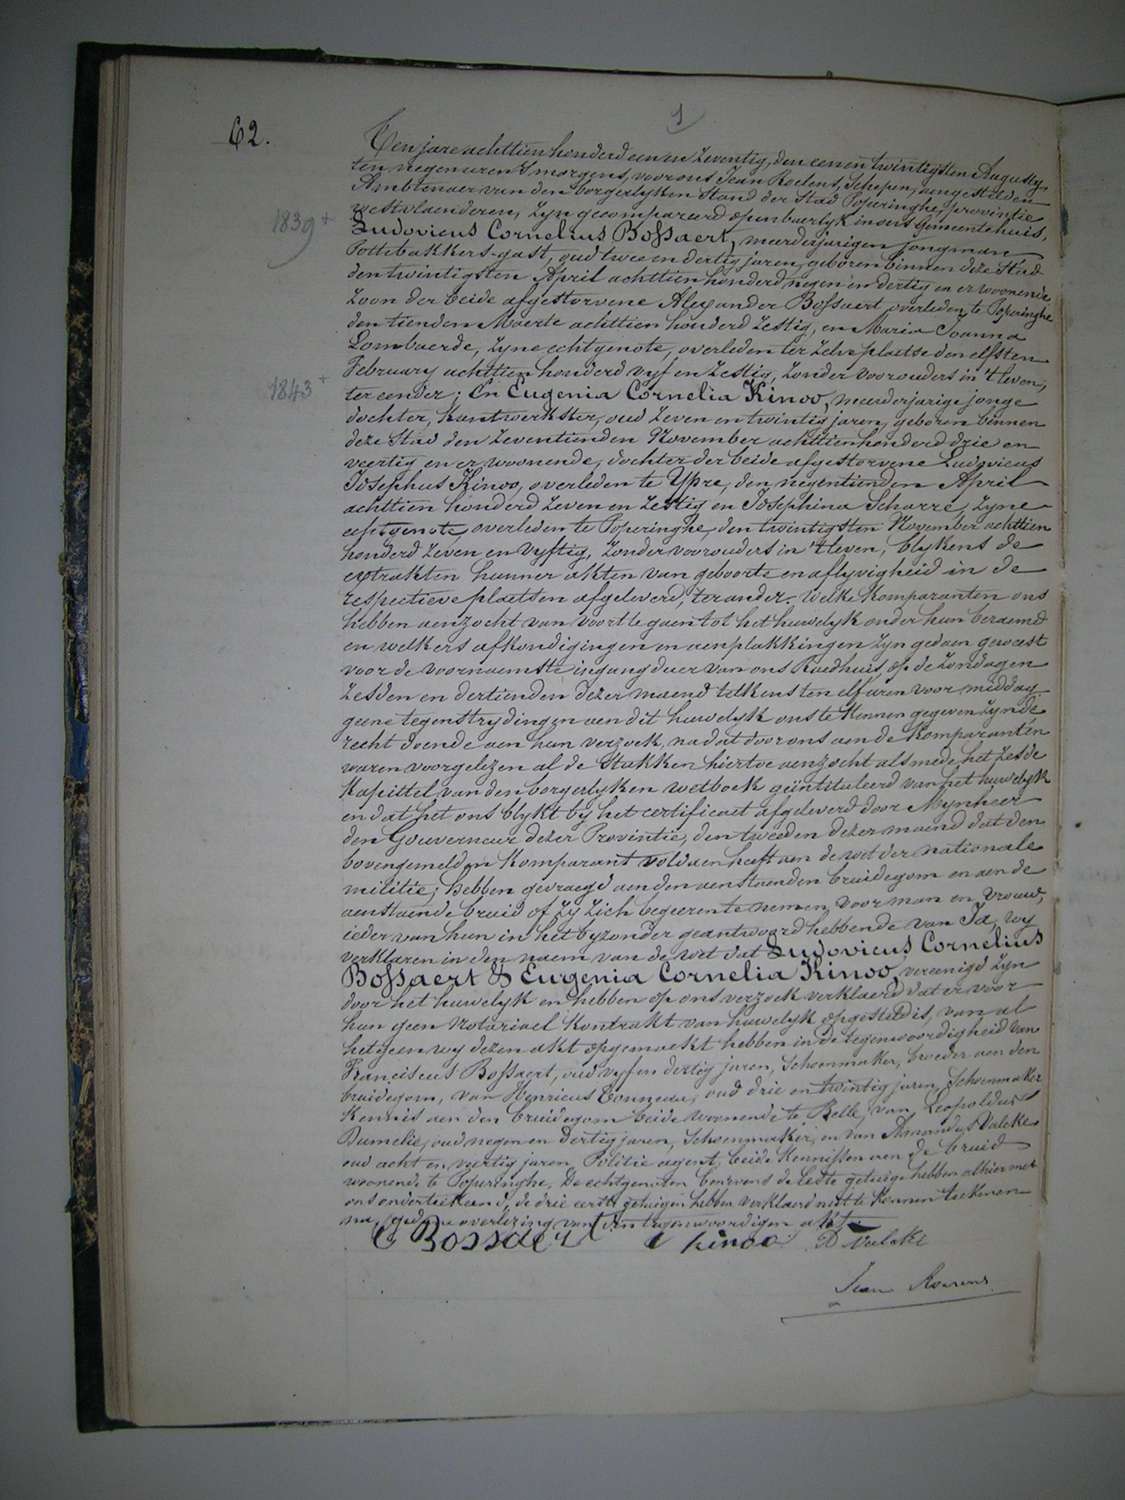 1
62.
Ten jare achttien honderd een en zeventig, den een en twintigsten Augusty,
ten negen uren 's morgens, voor ons Jean Roelens, Schepen, aengestelden
Ambtenaer van den borgerlyken Stand der Stad Poperinghe, provintie
westvlaenderen, zyn gecompareerd openbaerlyk in ons Gemeentehuis,
1839+
Ludovicus Cornelius Bossaert, meerderjarigen jongman
Pottebakkers-gast, oud twee en dertig jaren, geboren binnen deze Stad
den twintigsten April achttien honderd negen en dertig en er woonende
Zoon der beide afgestorvene Alexander Bossaert, overleden te Poperinghe
den tienden Maerte achttien honderd zestig, en Maria Joanna
Lombaerde, zyne echtgenote, overleden ter zelve plaetse den elfsten
February achttien honderd vyf en zestig, zonder voorouders in 't leven,
1843+
ter eender; En Eugenia Cornelia Kinoo, meerderjarige jonge
dochter, Kantwerkster, oud zeven en twintig jaren, geboren binnen
deze Stad den zeventienden November achttien honderd drie en
veertig en er woonende, dochter der beide afgestorvene Ludovicus
Josephus Kinoo, overleden te Ypre, den negentienden April
achttien honderd zeven en zestig en Josephina Scharre, zyne
echtgenote, overleden te Poperinghe, den twintigsten November achttien
honderd zeven en vyftig, zonder voorouders in 't leven, blykens de
extrakten hunner akten van geboorte en aflyvigheid in de
respectieve plaetsen afgeleverd, ter ander. Welke Komparanten ons
hebben aenzocht van voort te gaen tot het huwelyk onder hun beraemd
en welkers afkondigingen en aenplakkingen zyn gedaen geweest
voor de voornaemste ingangduer van ons Raedhuis, op de Zondagen
zesden en dertienden dezer maend telkens ten elf uren voor middag
geene tegenstrydingen aen dit huwelyk ons te Kennen gegeven zynde
recht doende aen hun verzoek, na dat door ons aen de Komparanten
waren voorgelezen al de Stukken hiertoe aenzocht alsmede het zesde
Kapittel van den borgerlyken wetboek geïntituleerd van het huwelyk
en dat het ons blykt by het certificaet afgeleverd door Mynheer
den Gouverneur dezer Provintie, den tweeden dezer maend dat den
bovengemelden Komparant voldaen heeft aen de wet der nationale
militie; hebben gevraegd aen den aenstaenden bruidegom en aen de
aenstaende bruid of zy zich begeeren te nemen voor man en vrouw,
ieder van hun in het byzonder geantwoord hebbende van Ja, wy
verklaren in den naem van de wet dat Ludovicus Cornelius
Bossaert & Eugenia Cornelia Kinoo, vereenigd zyn
door het huwelyk en hebben op ons verzoek verklaerd dat er voor
hun geen Notariael Kontrakt van huwelyk opgesteld is, van al
hetgeen wy dezen akt opgemaekt hebben in de tegenwoordigheid van
Franciscus Bossaert, oud vyf en dertig jaren, Schoenmaker, broeder aen den
bruidegom, van Henricus Bonneau, oud drie en twintig jaren, Schoenmaker
Kennis aen den bruidegom beide woonende te Belle, van Leopoldus
Dumelie, oud negen en dertig jaren, Schoenmaker, en van Amandus Valcke
oud acht en veertig jaren, Politie agent, beide Kennissen aen de bruid
woonende te Poperinghe. De echtgenoten benevens de leste getuige hebben alhier met
ons onderteekend, de drie eerste getuigen hebben verklaerd niet te Konnen teekenen
na gedane overlezing van den tegenwoordigen akt.
C Bossaert e kinoo D Valcke
Jean Roelens